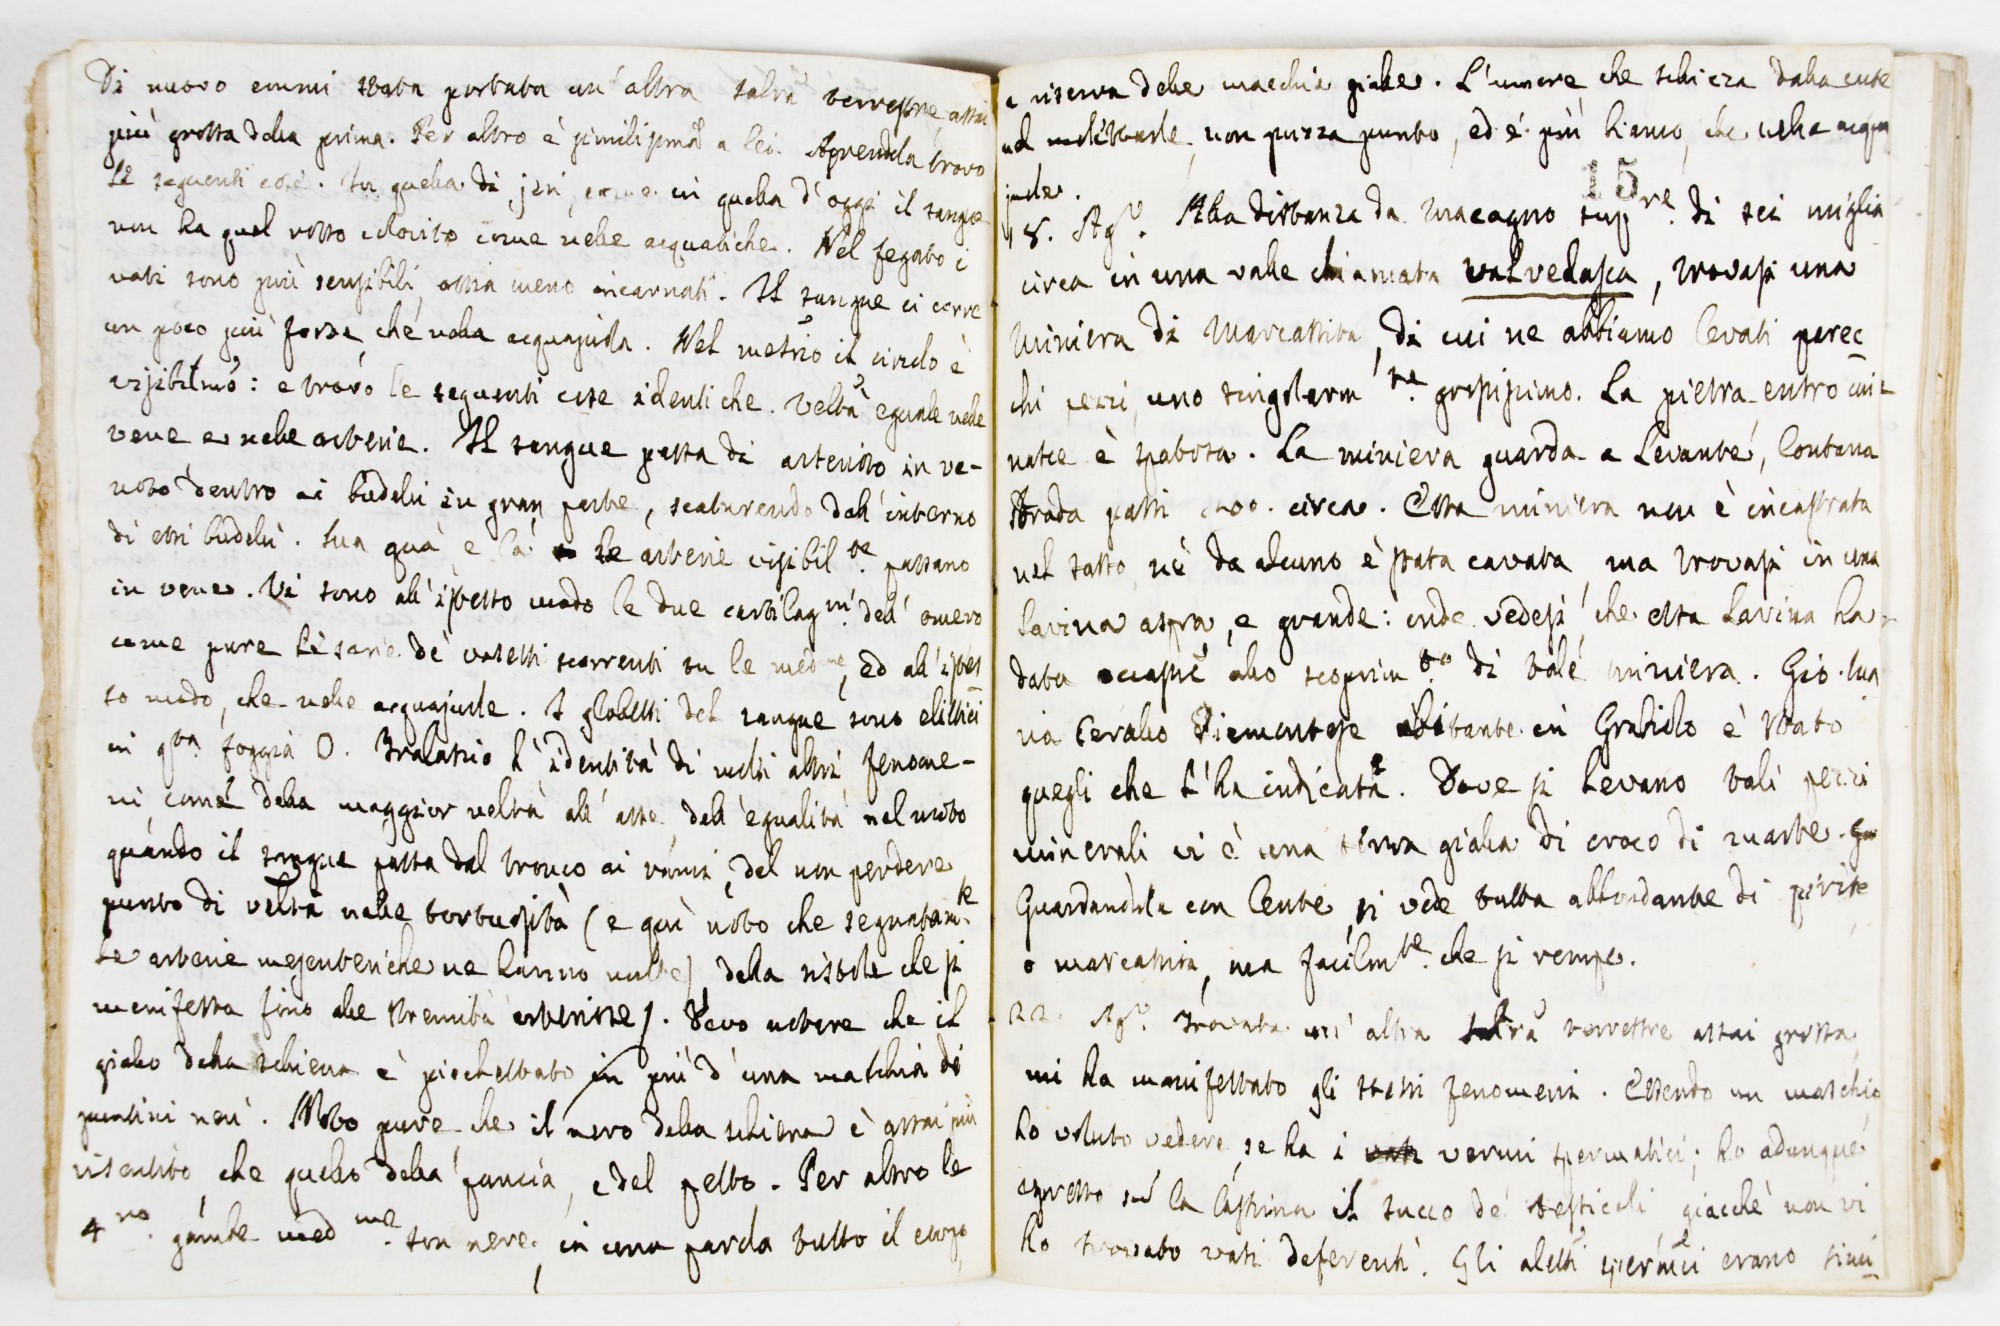 Di nuovo emmi stata portata un' altra salra terrestre, assai
più grossa della prima. Per altro è similissma a lei. Aprendola trovo
le seguenti cose. In quella di jeri, come in quella d' oggi il sangue
non ha quel rosso colorito come nelle acquatiche. Nel fegato i
vasi sono più sensibili, ossia meno incarnati. Il sangue ci corre
un poco più forse, che nella acquajuola. Nel mesrio il circolo è
visibilmo: e trovo le seguenti cose identiche. Velta eguale nelle
vene e nelle arterie. Il sangue passa di arterioso in ve-
noso dentro ai budelli in gran parte, scaturendo dall' interno
di essi budelli. Ma quà, e là le arterie visibil.te passano
in vene. Vi sono all' istesso modo le due cartilag.ni dell' omero
come pure la serie de' vasetti scorrenti su le med.me, ed all' istes
so modo, che nelle acquajuole. I globetti del sangue sono elittici
in q.ta foggia 0. Tralascio l' identità di molti altri fenome-
ni, come della maggior veltà all' asse, dell' egualità nel moto
quando il sangue passa dal tronco ai rami, del non perdere
punto di veltà nelle tortuosità (e quì noto che segnatam.te
le arterie mesenteriche ne hanno molte), della sistole che si
manifesta fino alle stremità arteriose). Devo notare che il
giallo della schiena è picchettato in più d' una macchia di
puntini neri. Noto pure che il nero della schiena è assai più
risentito, che quello della pancia, e del petto. Per altro le
4.ro gambe med.me son nere, in una parola tutto il corpo,
a riserva delle macchie gialle. L' umore che schizza dalla cute
nel molestarle, non puzza punto, ed è più bianco, che nelle acqua
juole.
15
18. Ag.o Alla distanza da Macagno sup.re di sei miglia
circa in una valle chiamata Valvedasca, trovasi una
miniera di Marcassita, di cui ne abbiamo levati parec
chi pezzi, uno singolarm.te grossissimo. La pietra entro cui
nasce è scabrosa. La miniera guarda a Levante, lontana
strada passi circa. Essa miniera non è incastrata
nel sasso, nè da alcuno è stata cavata, ma trovasi in una
lavina aspra, e grande: onde vedesi, che essa lavina ha
data occasne allo scoprim.to di tale miniera. Gio.
Cerallo Piemontese abitante in è stato
quegli che l' ha indicata. Dove si levano tali pezzi
minerali vi è una terra gialla di croco di marte.
Guardandola con lente, si vede tutta abbondante di pirite
o marcassita, ma facilm.te che si rompe.
22. Ag.o Trovata un' altra salra terrestre assai grossa,
mi ha manifestato gli stessi fenomeni. Essendo un maschio
ho voluto vedere, se ha i vermi spermatici; ho adunque
espresso su la lastrina il succo de' testicoli, giacchè non vi
ho trovato vasi deferenti. Gli aletti spermci erano simi